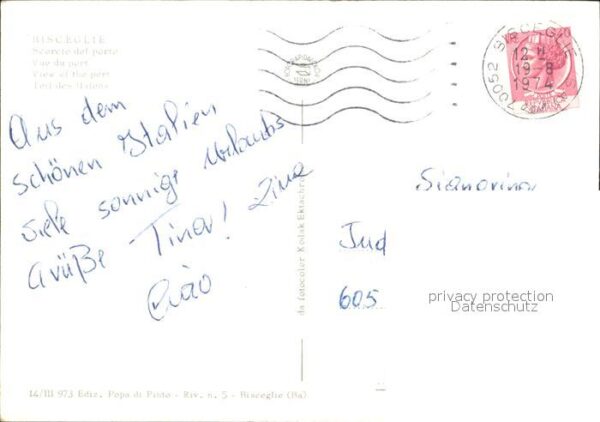 BISCEGLIE
Scorcio del porto
Vue du port
View of the port
Teil des Hafens
70052 BISCEGLIE
12-
19-8
1974
Aus dem
schönen Italien
viele sonnige Urlaubs
Grüße Tina!
Ciao
Signorina
Jud
605
privacy protection
Datenschutz
da fotocolor Kodak Ektachrome
14/III 973 Ediz. Popa di Pinto - Riv. n. 5 - Bisceglie (Ba)